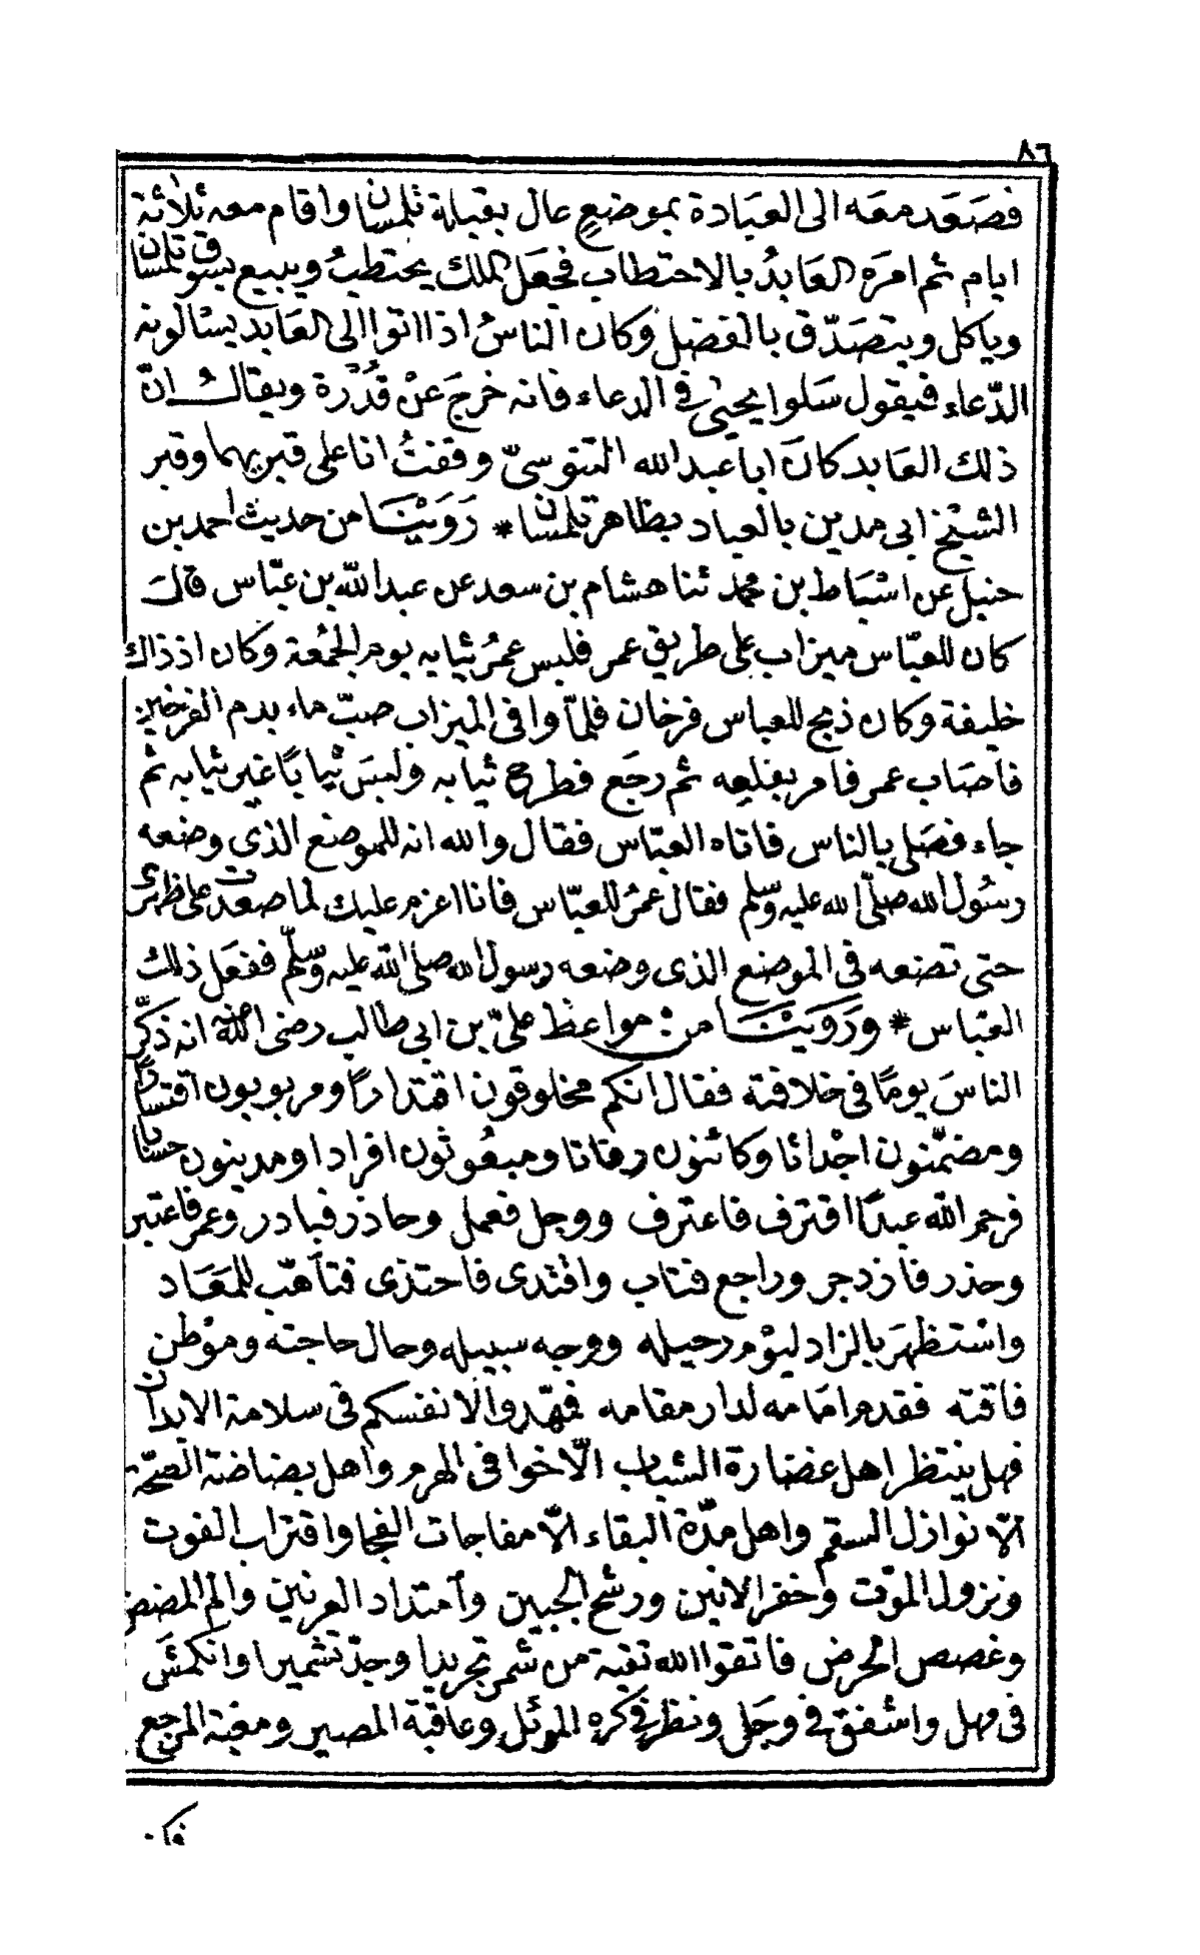 ٨٦
فصَعَد معَه الى العبَادة بموضعٍ عال بقبلة تلمسان واقام معه ثلاثة
ايام ثم امرَه العَابدُ بالاحتطاب فجعَل الملك يحتطبُ ويبيع بسوق تلمسان
وياكل ويتصَدّق بالفضل وكان الناسُ اذا اتوا الى العَابد يسْالونه
الدّعاء فيقول سَلوا يحيٰى في الدعاء فانه خرجَ عنْ قُدْرة ويقالُ انّ
ذلك العَابد كانَ ابا عبد الله التنوسىّ وقفتُ انا على قبريهما وقبر
الشيْخ ابى مدين بالعباد بظاهر تلمسان * رَوَيْنَا من حديث احمد بن
حنبل عن اسْبَاط بن محمد ثنا هشام بن سعد عن عبد اللّه بن عبّاس قال
كان للعبّاس ميزاب على طريق عمر فلبس عمرُ ثيابه يوم الجمُعة وكان اذ ذاك
خليفة وكان ذبح للعباس فرخان فلمّا وافى الميزاب صبّ ماء بدم الفرخين
فاصَاب عمر فامر بقلعه ثم رجَع فطرح ثيابه ولبسَ ثيابًا غير ثيابه ثم
جاء فصَلى بالناس فاتاه العبّاس فقال والله انه للموضع الذى وضعه
رسُول الله صلّى الله عليه وسلم فقال عمرُ للعبّاس فانا اعزم عليك لما صعدت على ظهرى
حتى تضعه فى الموضع الذى وضعه رسول الله صلى الله عليه وسلّم ففعَل ذلك
العبّاس * ورَوَيْنَا من مواعظ علىّ بن ابى طالب رضى الله عنه انه ذكّر
الناسَ يومًا فى خلافته فقال انكم مخلوقون اقتدارًا ومربوبون اقتسارًا
ومضمّنون اجْداثا وكائنون رفاتا ومبعُوثون افرادا ومدينون حسابا
فرحم اللّه عبدًا اقترف فاعترف ووجل فعمل وحاذر فبادر وعمر فاعتبر
وحذر فازدجر وراجع فتاب واقتدى فاحتذى فتأهّب للمعَاد
واسْتظهرَ بالزاد ليوْم رحيله ووجه سبيله وحال حاجته وموْطن
فاقته فقدم امَامه لدار مقامه فمهّدوا لانفسكم فى سلامة الابدان
فهل ينتظر اهل غضارة الشباب الّا حوانى الهرم واهل بضاضة الصّحّة
الّا نوازل السقم واهل مدّة البقاء الّا مفاجات الفجا واقتراب الفوت
ونزول الموْت وحفز الانين ورشح الجبين وامْتداد العرنين والم المضض
وغصص الجرض فاتقوا الله تقية من شمر تجريدا وجدّ تشميرا وانكمشَ
فى مهل واشفق في وجَل ونظر في كره الموئل وعاقبة المصير ومغبّة المرجع